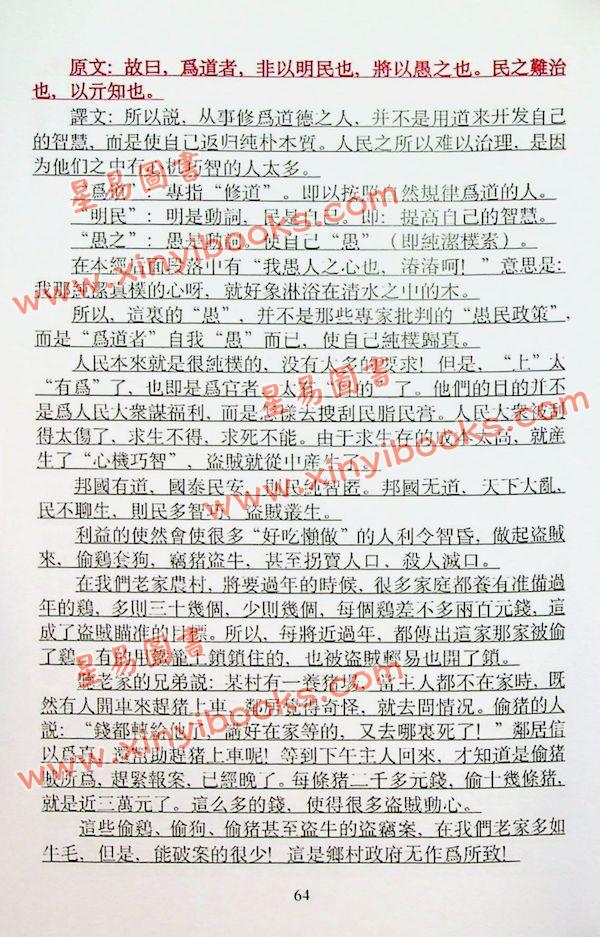 原文：故曰，爲道者，非以明民也，將以愚之也。民之難治
也，以亓知也。
譯文：所以説，从事修爲道德之人，并不是用道来开发自己
的智慧，而是使自己返归纯朴本質。人民之所以难以治理，是因
为他们之中有心机巧智的人太多。
“爲道”：專指“修道”。即以按照自然規律爲道的人。
“明民”：明是動詞，民是自己。即：提高自己的智慧。
“愚之”：愚是動詞，使自己“愚”（即純潔樸素）。
在本經后面段落中有“我愚人之心也，湷湷呵！”意思是：
我那純潔真樸的心呀，就好象淋浴在清水之中的木。
所以，這裏的“愚”，并不是那些專家批判的“愚民政策”，
而是“爲道者”自我“愚”而已，使自己純樸歸真。
人民本來就是很純樸的，没有太多的要求！但是，“上”太
“有爲”了，也即是爲官者 太有“目的”了。他們的目的并不
是爲人民大衆謀福利，而是怎樣去搜刮民脂民膏。人民大衆被刮
得太傷了，求生不得，求死不能。由于求生存的成本太高，就産
生了“心機巧智”，盗賊就從中産生了。
邦國有道，國泰民安，則民純智匿。邦國无道，天下大亂，
民不聊生，則民多智巧，盗賊叢生。
利益的使然會使很多“好吃懶做”的人利令智昏，做起盗賊
來，偷鷄套狗，竊猪盗牛，甚至拐賣人口、殺人滅口。
在我們老家農村，將要過年的時候，很多家庭都養有准備過
年的鷄，多則三十幾個，少則幾個，每個鷄差不多兩百元錢，這
成了盗賊瞄准的目標。所以，每將近過年，都傳出這家那家被偷
了鷄，有的用鐵籠上鎖鎖住的，也被盗賊輕易也開了鎖。
聽老家的兄弟説：某村有一養猪場，當主人都不在家時，既
然有人開車來趕猪上車，鄰居覺得奇怪，就去問情况。偷猪的人
説：“錢都轉給他 講好在家等的，又去哪裏死了！”鄰居信
以爲真，還幫助趕猪上車呢！等到下午主人回來，才知道是偷猪
賊所爲，趕緊報案，已經晚了。每條猪二千多元錢，偷十幾條猪，
就是近三萬元了。這么多的錢，使得很多盗賊動心。
這些偷鷄、偷狗、偷猪甚至盗牛的盗竊案，在我們老家多如
牛毛，但是，能破案的很少！這是鄉村政府无作爲所致！
64
星易圖書
www.xinyibooks.com
星易圖書
www.xinyibooks.com
星易圖書
www.xinyibooks.com